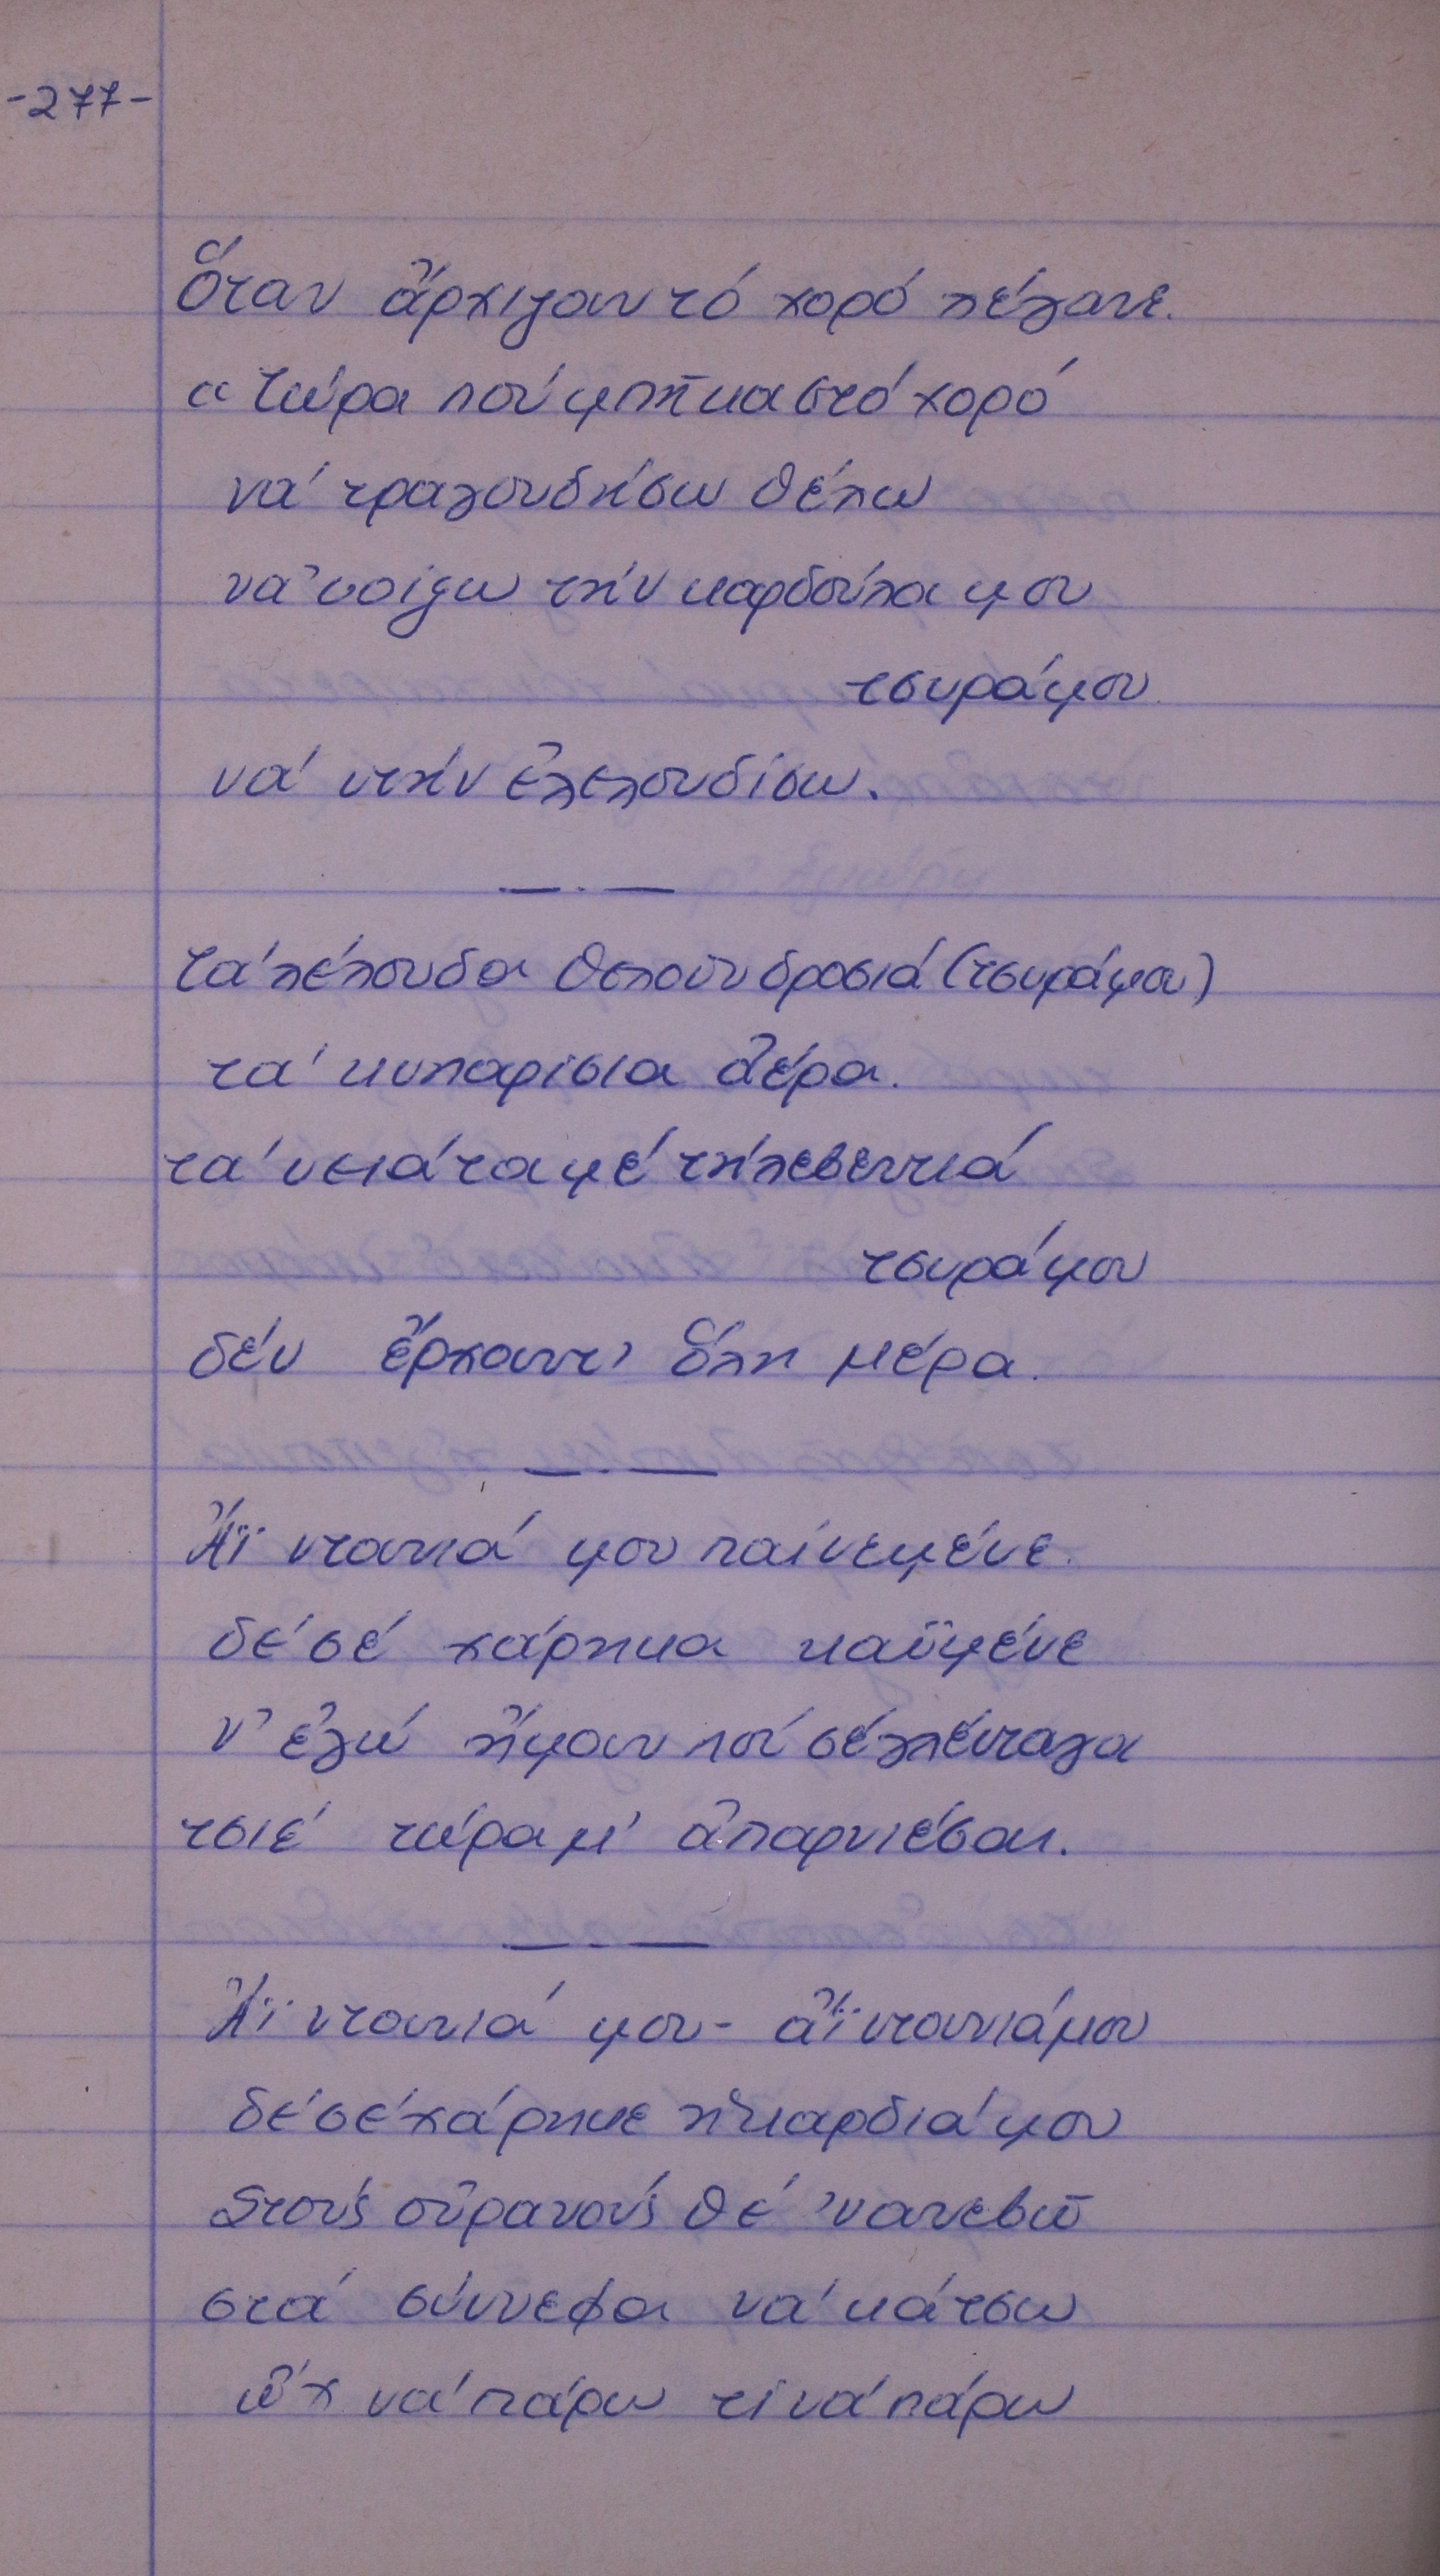 -277-
Ὅταν ἄρχιζαν τό χορό λέγανε.
« Τώρα πού μπῆκα στό χορό
νά τραγουδήσω θέλω
νά 'νοίξω τήν καρδούλα μου
τσυρά μου
νά ντήν ἐλελουδίσω.
— . —
Τά λέλουδα θελοῦν δροσιά (τσυρά μου)
τά κυπαρίσια ἀέρα.
τά νειάτα μέ τή λεβεντιά
τσυρά μου
δέν ἔρχαντ' ὅλη μέρα.
— . —
Ἄϊ νταντά μου παίνεμένε.
δέ σέ χάρηκα καϋμένε
ν' ἐγώ ἤμαν πού σέ λένταγα
τσιέ τώρα μ' ἀπαρνιέσαι.
— . —
Ἄϊ ντανιά μου - ἄϊ ντανιά μου
δέ σέ χάρηκε ἡ καρδιά μου
Στούς οὐρανούς θέ 'νανεβῶ
στά σύννεφα νά κάτσω
ὤχ νά πάρω τί νά πάρω